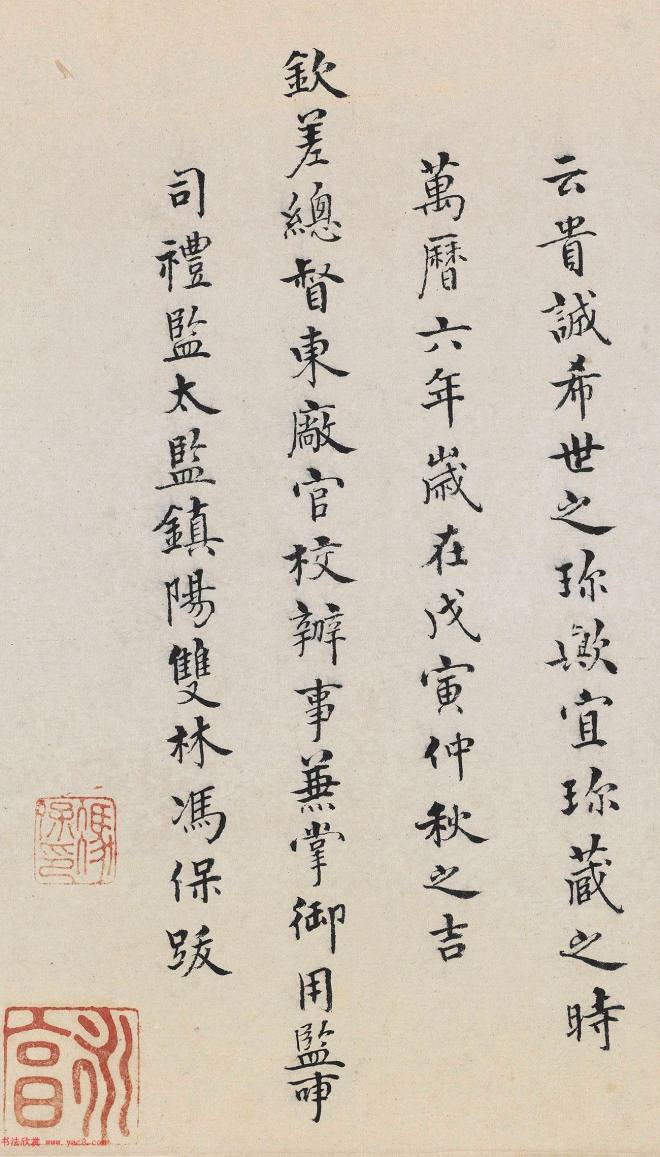 云貴誠希世之珎歟宜珎藏之時
萬曆六年歲在戊寅仲秋之吉
欽差總督東廠官校辦事兼掌御用監事
司禮監太監鎮陽雙林馮保跋
馮保印
书法欣赏 www.yac8.com